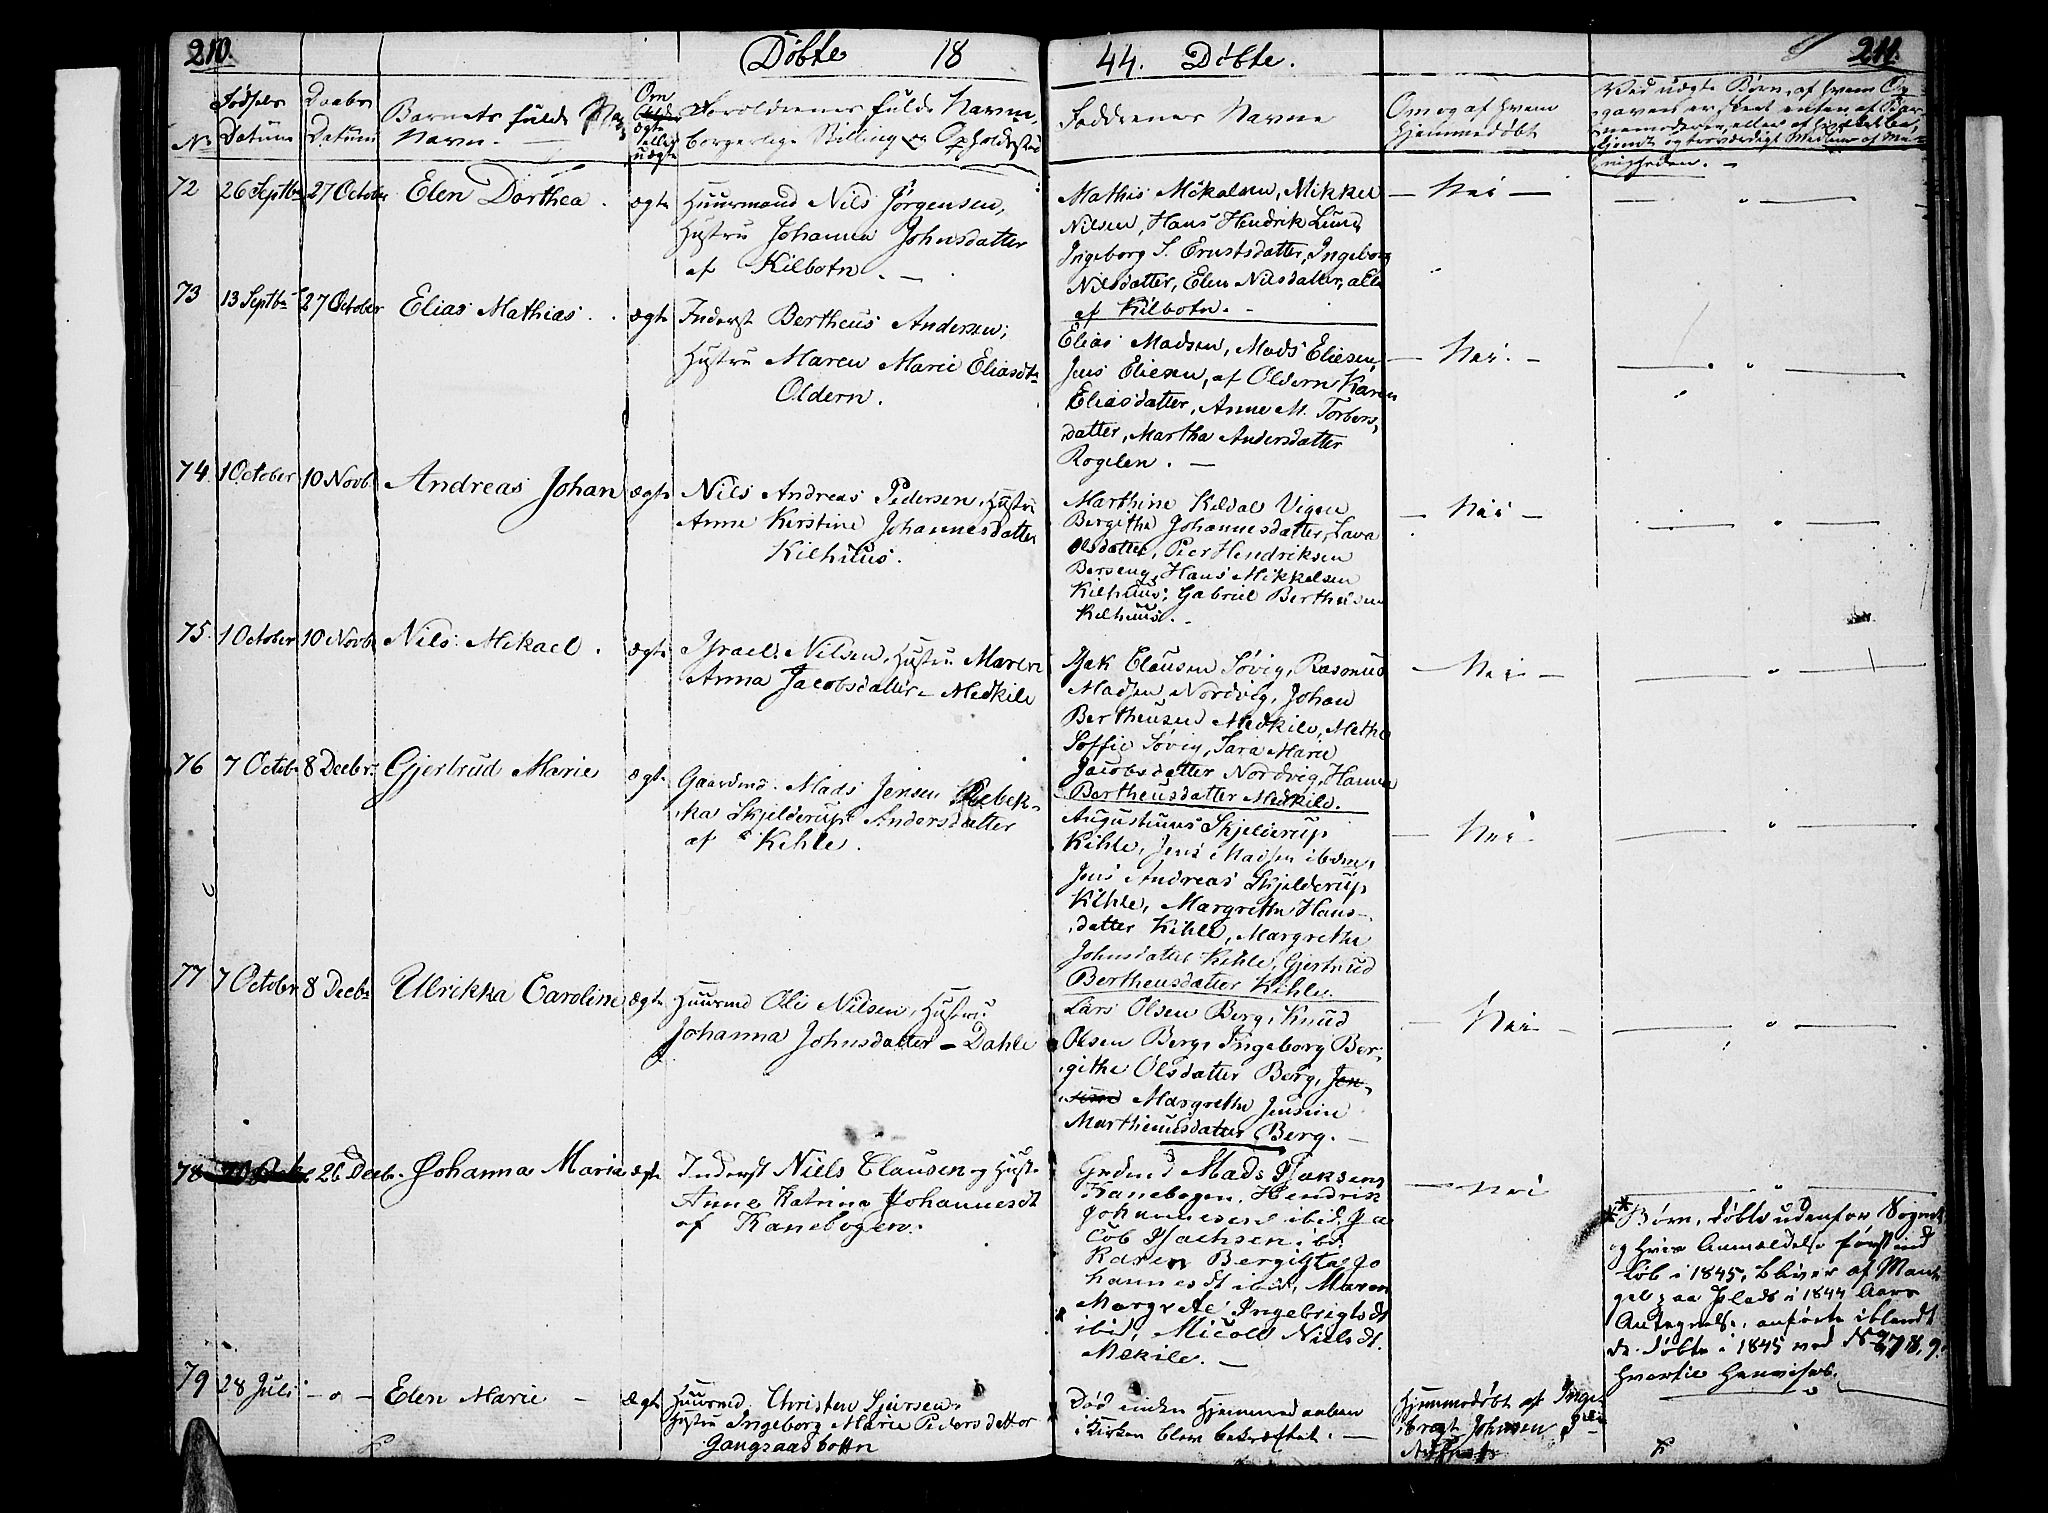 210. Døbte 18
44. Døbte. 211.
No
Fødsels
Datum
Daabs
Datum
Barnets fulde
Navn.
Om
ægte
eller
uægte
Foreldrenes fulde Navne,
borgerlige Stilling og Opholdssted
Faddernes Navne
Om og af hvem
hjemmedøbt
Ved uægte Børn, af hvem Op
gaven er skeet, enten af Bar
nemoderen, eller af
og troværdigt Medlem af
72 26 Septbr 27 October Elen Dorthea. ægte
Huusmand Nils Jørgensen,
Hustru Johanna Johnsdatter
af Kilbotn.
Mathis Mikalsen, Mikkel
Nilsen, Hans Hendrik Lund
Ingeborg S. Ernstsdatter, Ingeborg
Nilsdatter, Elen Nilsdatter, alle
af Kilbotn.
— Nei —
73 13 Septbr 27 October Elias Mathias. ægte
Inderst Bertheus Andersen,
Hustru Maren Marie Eliasdtr
Oldern.
Elias Madsen, Mads Eliesen,
Jens Eliesen, af Oldern Karen
Eliasdatter, Anne M. Torbers,
datter, Martha Andersdatter
Rogelen. —
— Nei. —
74. 1 October 10 Novb. Andreas Johan ægte
Nils Andreas Pedersen, Hustru
Anne Kirstine Johannesdatter
Kilhuus.
Marthine Kildal Vigen
Bergithe Johannesdatter, Lava
Olsdatter, Peer Hendriksen
Berseng, Hans Mikkelsen
Kilhuus, Gabriel Bertheusen
Kilhuus. —
— Nei —
75. 1 October 10 Novb. Nils Mikael. ægte
Israel Nilsen, Hustru Maren
Anna Jacobsdatter — Medkile
Isak Clausen Søvig, Rasmus
Madsen Nordvig, Johan
Bertheusen Medkile, Methe
Soffie Søvig, Sara Marie
Jacobsdatter Nordvig, Hanna
Bertheusdatter Medkile.
— Nei —
76 7 Octob. 8 Decbr. Gjertrud Marie ægte
Gaardmd. Mads Jensen Rebek-
ka Skjelderup Andersdatter
af Kihle.
Augustinus Skjelderup
Kihle, Jens Madsen ibdm,
Jens Andreas Skjelderup
Kihle, Margrethe Hans-
datter Kihle, Margrethe
Johnsdatter Kihle, Gjertrud
Bertheusdatter Kihle.
— Nei
77 7 October 8 Decbr Ulrikka Caroline ægte
Huusmd Ole Nilsen, Hustru
Johanna Johnsdatter — Dahle
Lars Olsen Berg, Knud
Olsen Berg, Ingeborg Ber-
githe Olsdatter Berg, Jen-
sine Margrethe Jensine
Martheuusdatter Berg. —
— Nei —
78 26 Decbr. Johanna Marie ægte
Inderst Niels Clausen og Hust.
Anne Katrina Johannesdt
af Kanebogen.
Grdmd Mads Isaksens
Kanebogen. Hendrik
Johannesen ibid, Ja
cob Isachsen ibd.
Karen Bergitta Jo
hannesdt ibid, Maren
Margrete Ingebrigtsdt
ibid, Nicolle Nielsdt.
Mekile. —
— Nei
** Børn, døbte udenfor Sognet
og hvis Anmeldelse først ind
løb i 1845, bliver af Man
gel paa Plads i 1844 Aars
Antegnelse, anførte iblandt
de døbte i 1845 ved No 7, 8, 9.
hvortil henvises.
79 28 Juli — " — Elen Marie — ægte
Huusmd. Christen Sjursen,
Hustru Ingeborg Marie Pedersdatter
Gangsaasbottn
Død inden Hjemmedaaben
i Kirken blev bekræftet. —
Hjemmedøbt af Inge-
brigt Johnsen